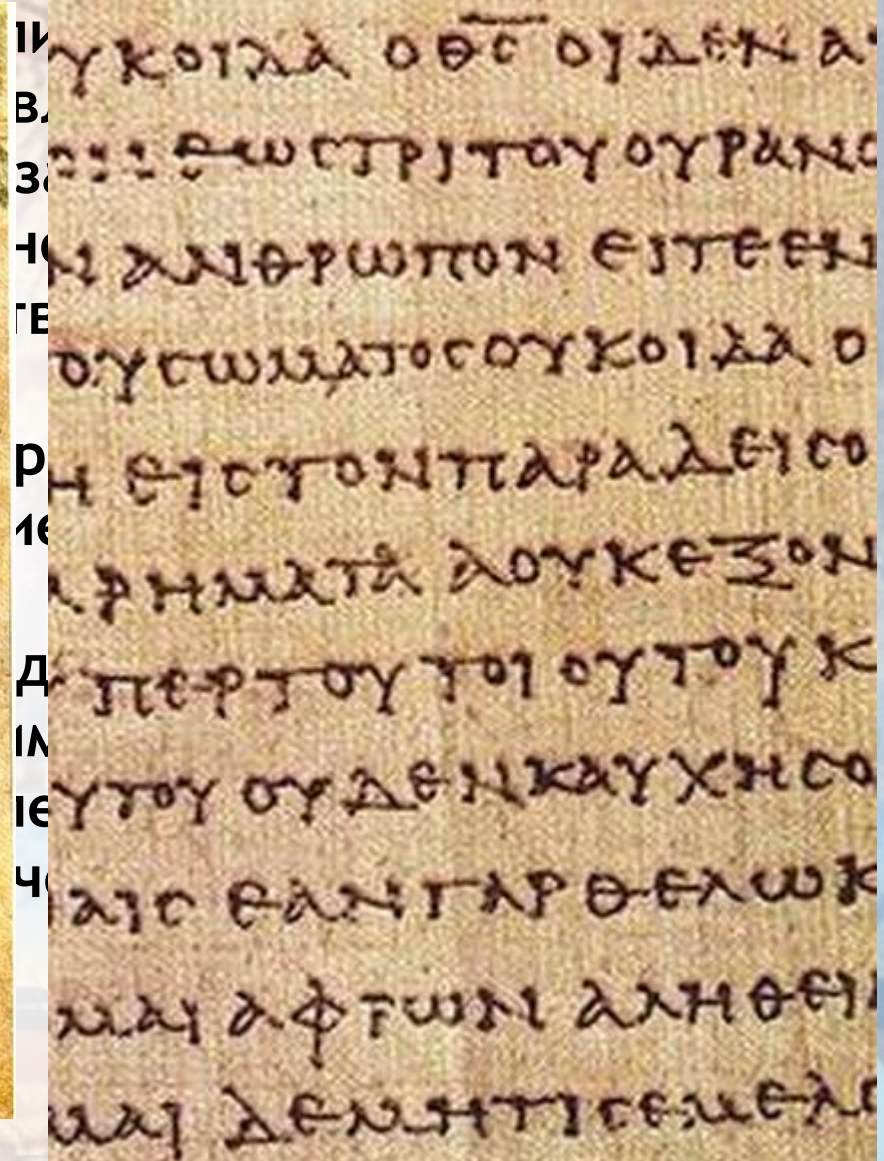 ΥΚΟΙΔΑ Ο ΘϹ ΟΙΔΕΝ Α
ΕΩϹΤΡΙΤΟΥ ΟΥΡΑΝΟ
Ν ΑΝΘΡΩΠΟΝ ΕΙΤΕΕΝ
ΟΥϹΩΜΑΤΟϹΟΥΚΟΙΔΑ Ο
Η ΕΙϹΤΟΝΠΑΡΑΔΕΙϹΟ
ΑΡΗΜΑΤΑ ΑΟΥΚΕΞΟΝ
ΠΕΡΤΟΥ ΤΟΙ ΟΥΤΟΥ Κ
ΥΤΟΥ ΟΥΔΕΝΚΑΥΧΗϹΟ
ΑΙϹ ΕΑΝΓΑΡ ΘΕΛΩΚ
ΜΑΙ ΑΦΤΩΝ ΑΛΗΘΕΙ
ΜΑΙ ΔΕΜΗΤΙϹΕΜΕΛΟ